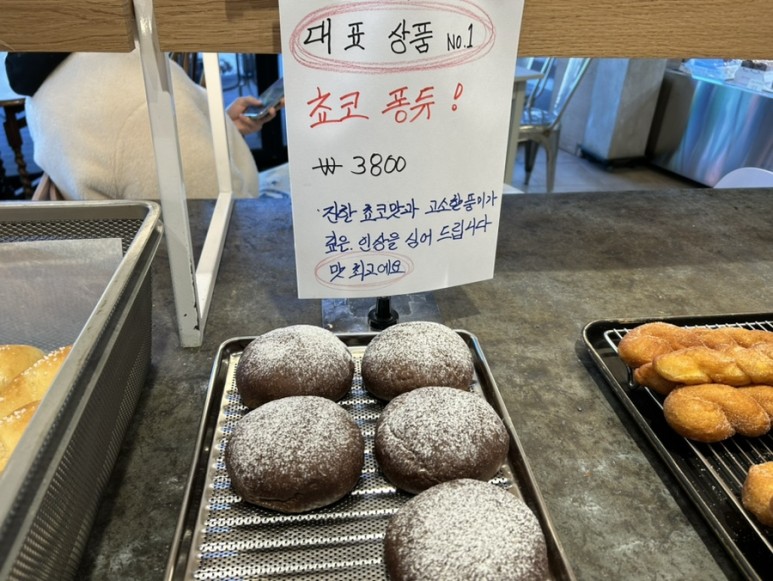 대표 상품 No.1
쵸코 퐁듀!
₩ 3800
·진한 쵸코맛과 고소한 풍미가
깊은. 인상을 심어 드립니다
맛 최고예요